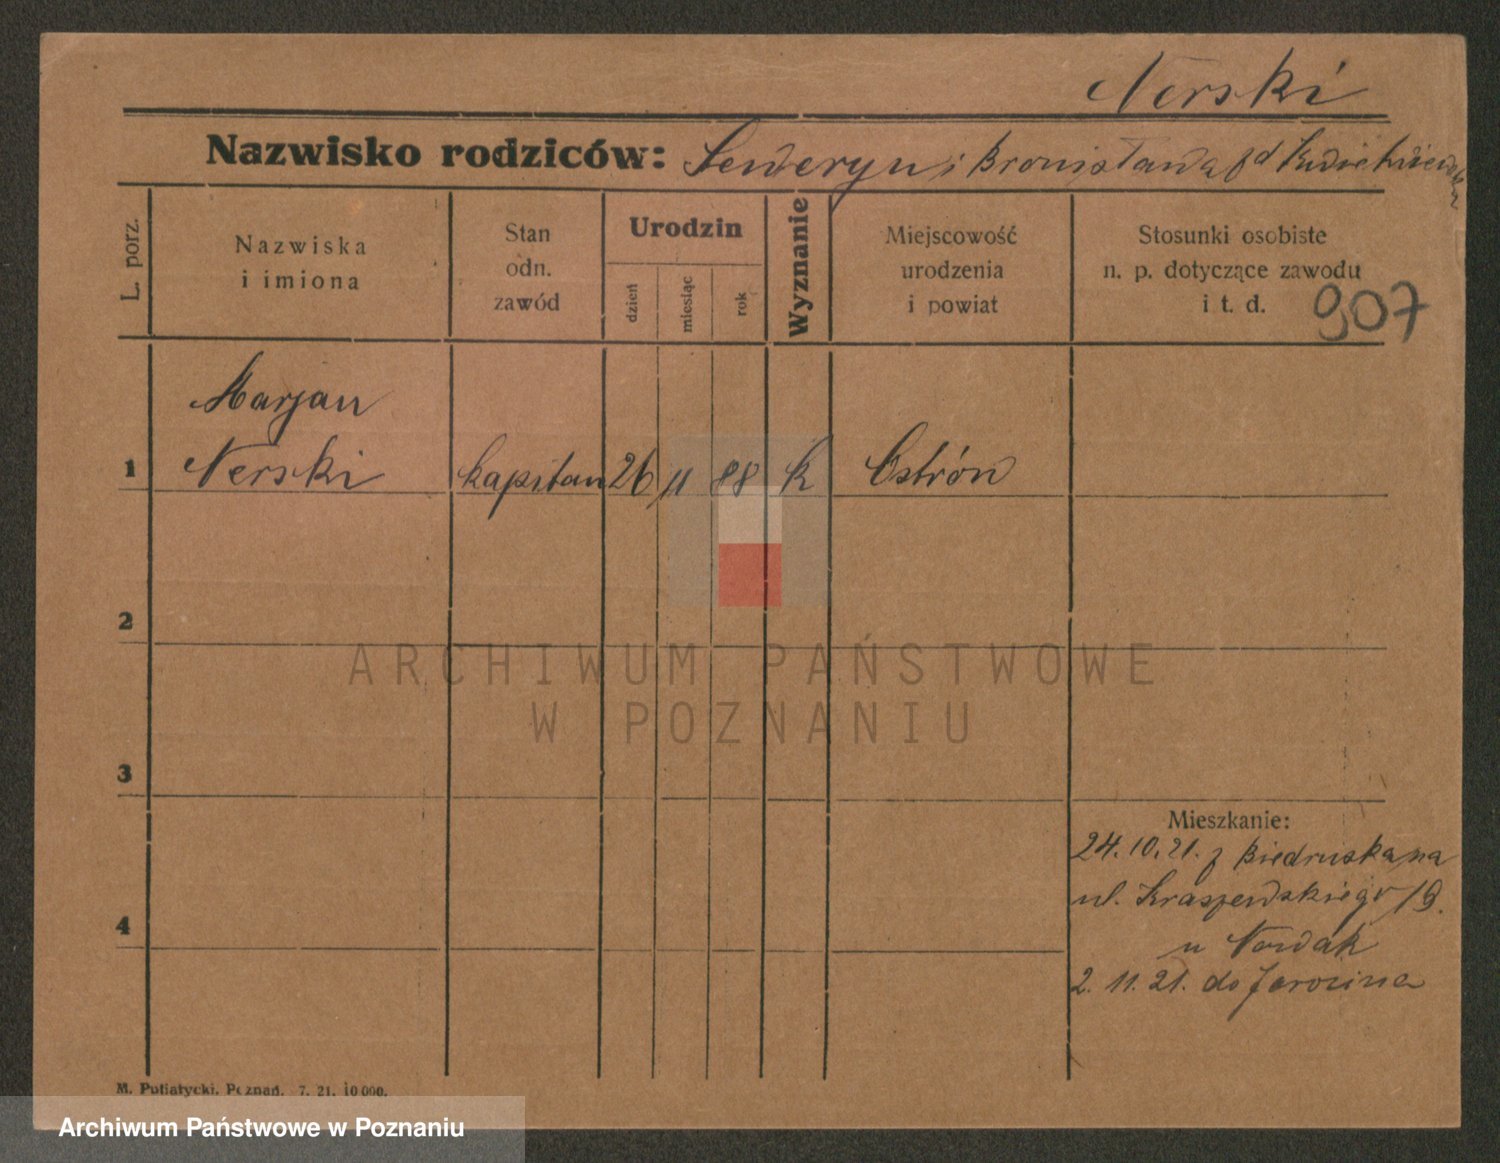 Nerski
Nazwisko rodziców: Seweryn i Bronisława
L. porz.
Nazwiska
i imiona
Stan
odn.
zawód
Urodzin
dzień
miesiąc
rok
Wyznanie
Miejscowość
urodzenia
i powiat
Stosunki osobiste
n. p. dotyczące zawodu
i t. d.
907
Marjan
1 Nerski kapitan 26 11 88 k Ostrów
2
3
4
Mieszkanie:
24.10.21. z Biedruska na
ul. Kraszewskiego 19.
u Nowak
2. 11. 21. do Jarocina
M. Putiatycki. Poznań. 7. 21. 10 000.
ARCHIWUM PAŃSTWOWE
W POZNANIU
Archiwum Państwowe w Poznaniu